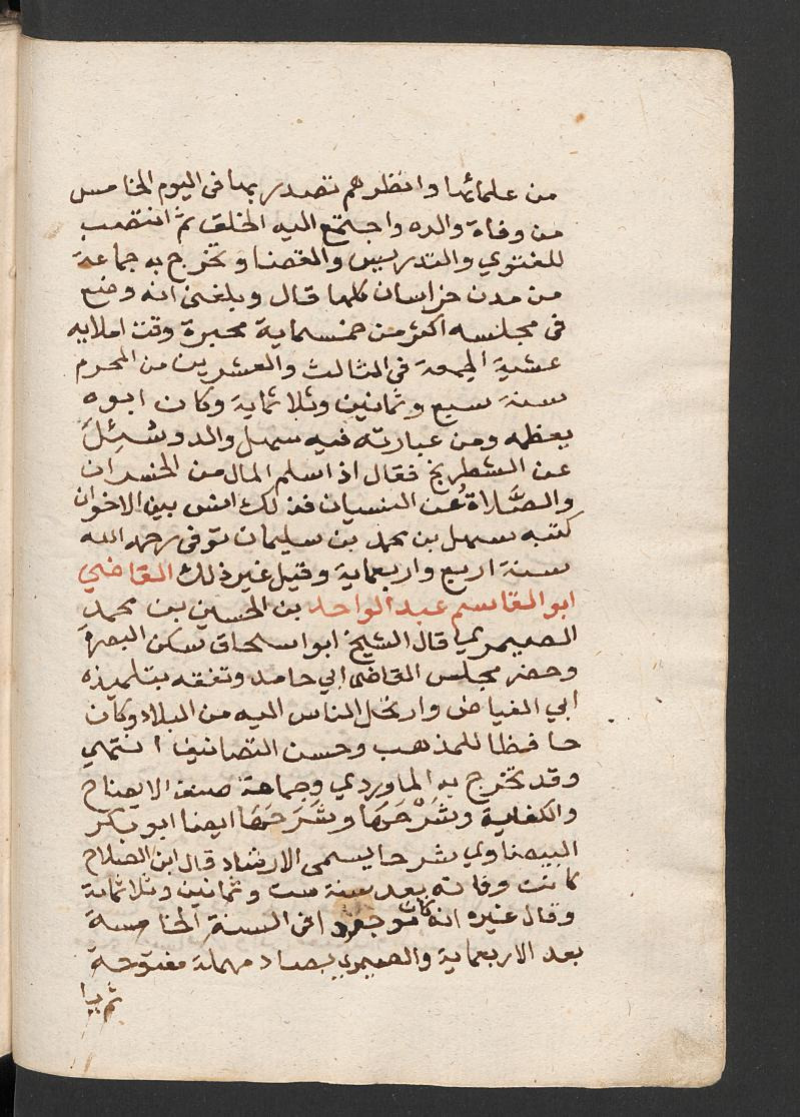 من علمائها وانظرهم تصدر بها فى اليوم الخامس
من وفاة والده واجتمع اليه الخلق ثم انتصب
للفتوي والتدريس والقضا وتخرج به جماعة
من مدن خراسان كلها قال وبلغنى انه وضع
فى مجلسه اكثر من خمسماية محبرة وقت املايه
عشية الجمعة فى الثالث والعشرين من المحرم
سنة سبع وثمانين وثلاثماية وكان ابوه
يعظمه ومن عبارته فيه سهل والد وسُئِلَ
عن الشطرنج فقال اذ اسلم المال من الخسران
والصَّلاة عن النسيان فذلك انس بين الاخوان
كتبه سهل بن محمد بن سليمان توفى رحمه الله
سنة اربع واربعماية وقيل غير ذلك القاضي
ابو القاسم عبد الواحد بن الحسين بن محمد
الصيمري قال الشيخ ابو اسحاق سكن البصرة
وحضر مجلس القاضى ابي حامد وتفقه بتلميذه
ابي الفياض وارتحل الناس اليه من البلاد وكان
حافظا للمذهب وحسن التصانيف انتهي
وقد تخرج به الماوردي وجماعة صنف الايضاح
والكفاية وشَرْحَهَا وشَرَحَهَا ايضا ابو بكر
البيضاوي شرحا يسمى الارشاد قال ابن الصلاح
كانت وفاته بعد سنة ست وثمانين وثلاثماية
وقال غيره انه كان موجودا فى السنة الخامسة
بعد الاربعماية والصيمري بصاد مهملة مفتوحة
ثم يا